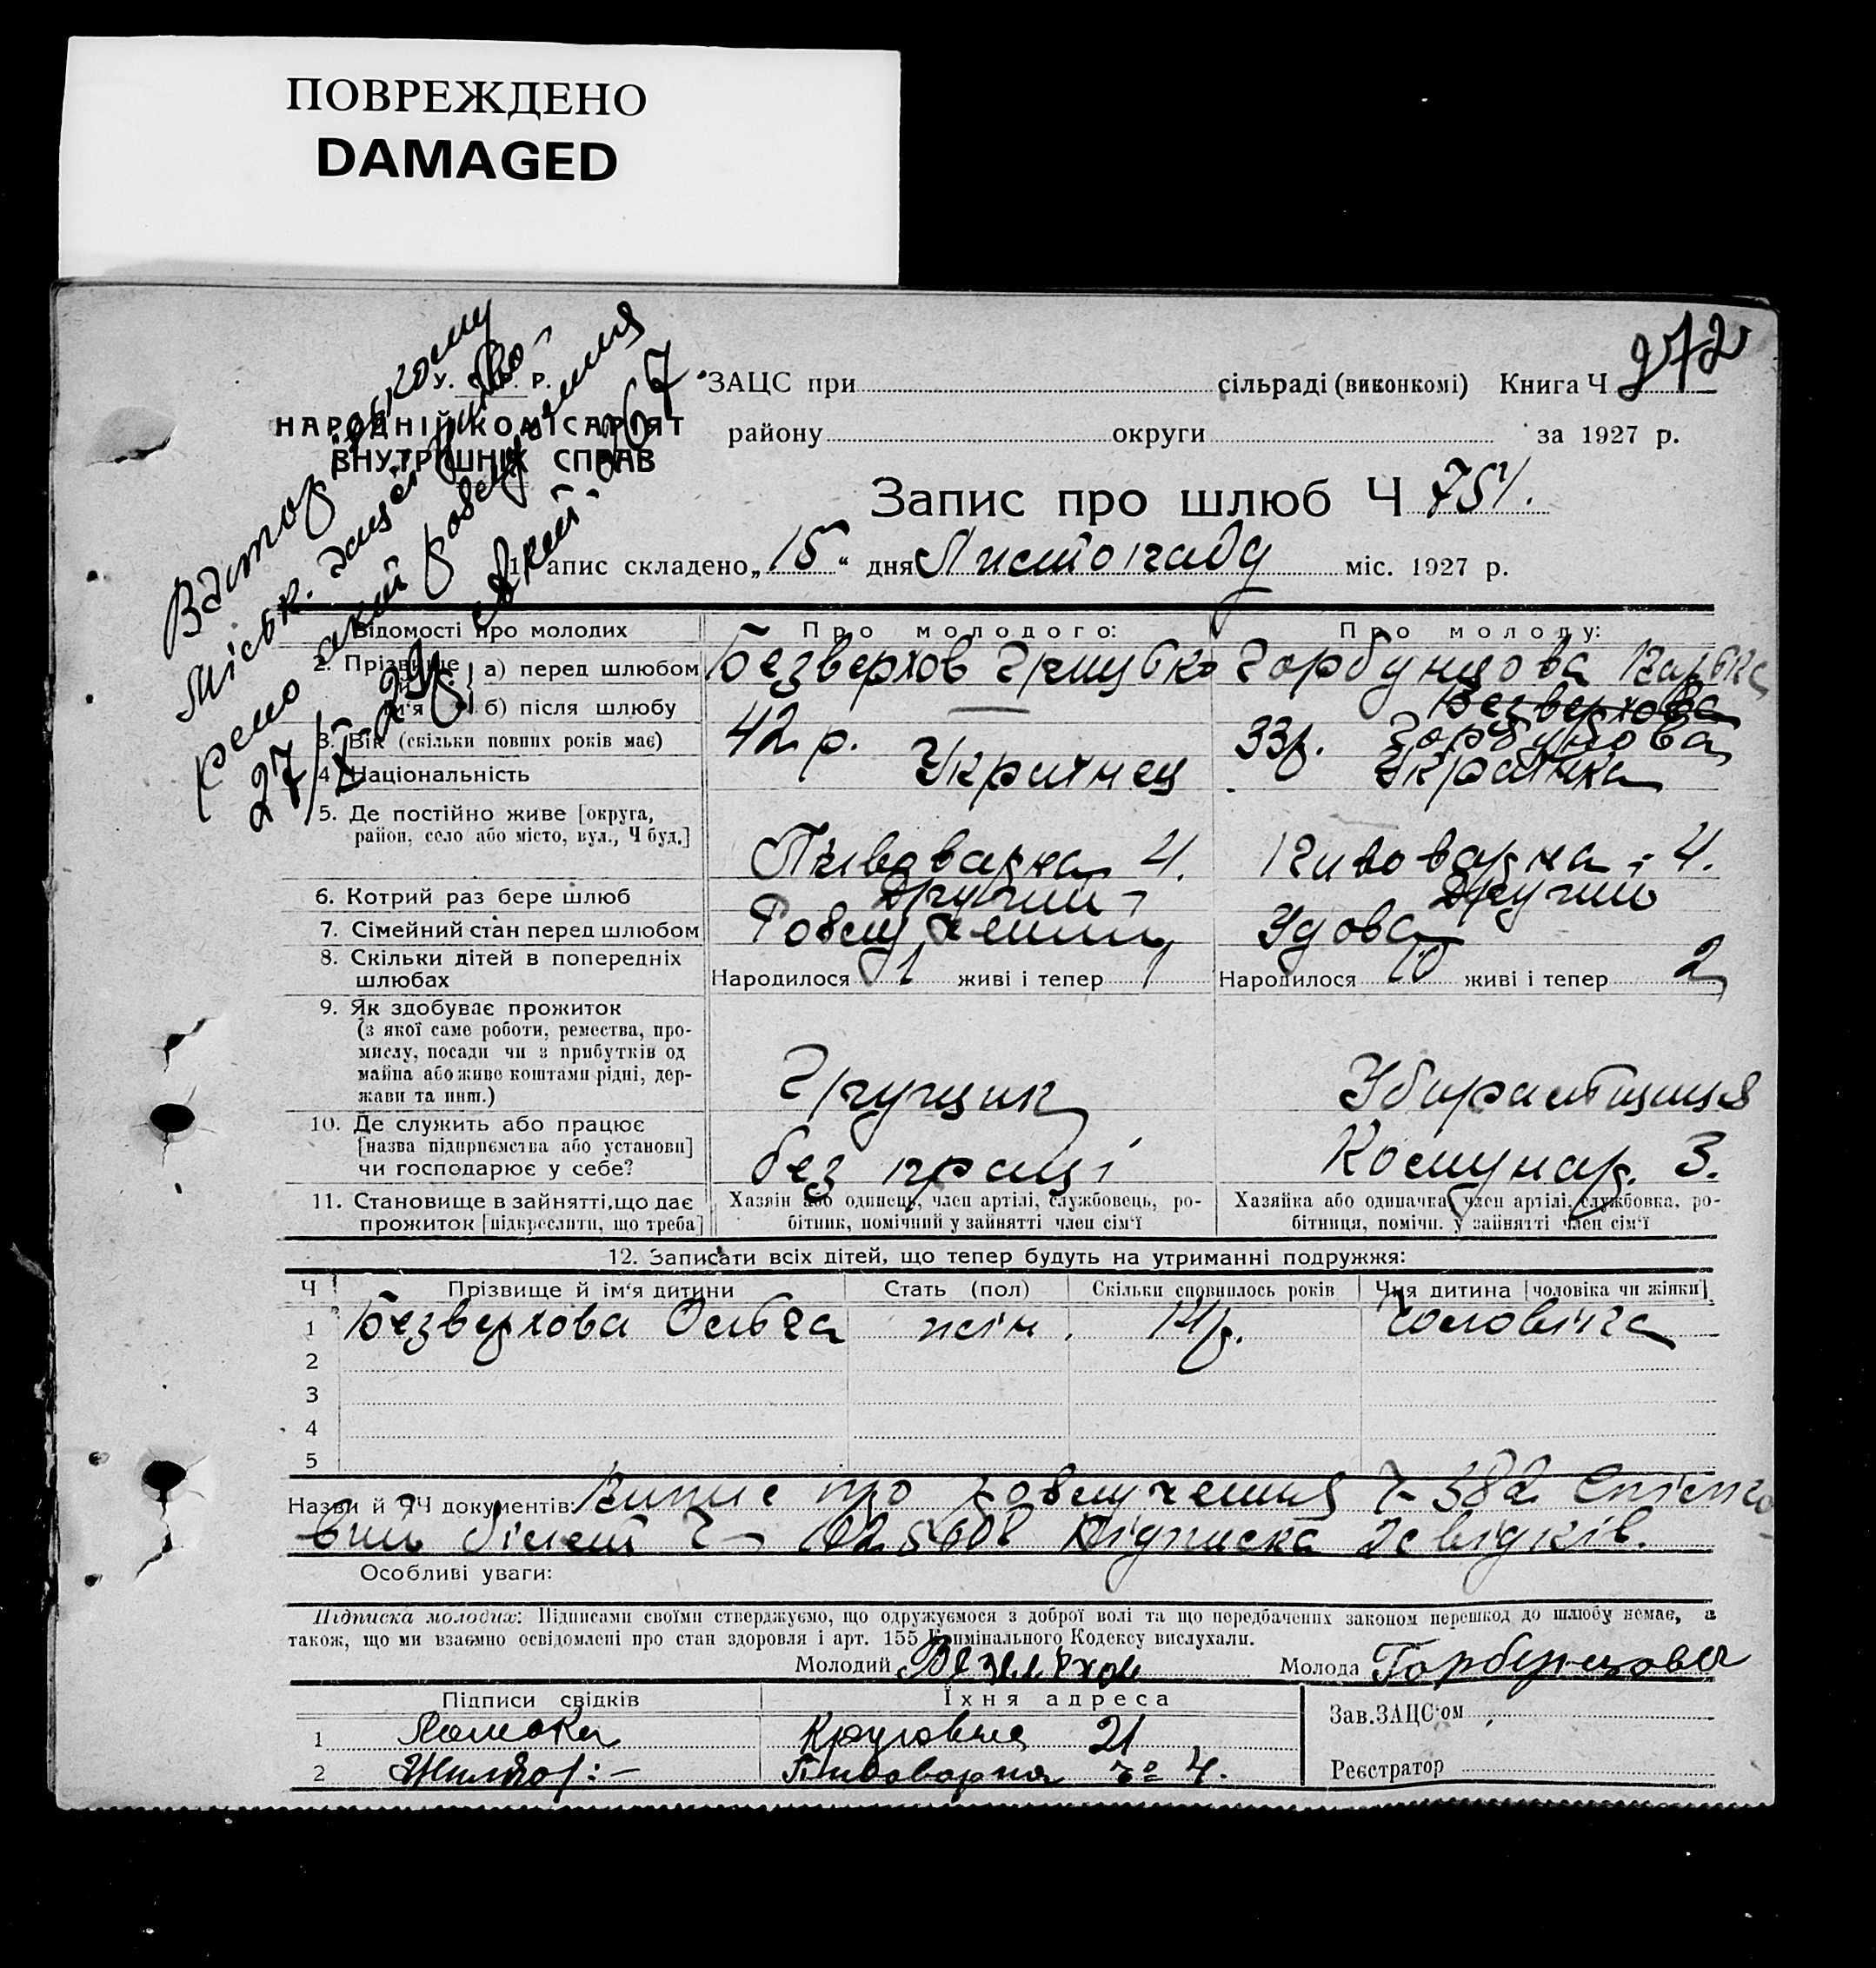 ПОВРЕЖДЕНО
DAMAGED
У. С. Р. Р.
НАРОДНІЙ КОМІСАРІЯТ
ВНУТРІШНІХ СПРАВ
ЗАЦС при сільраді (виконкомі) Книга Ч 272
району округи за 1927 р.
Запис про шлюб Ч 754.
1. Запис складено „15“ дня Листопаду міс. 1927 р.
міськ.
27/X-29
Відомості про молодих Про молодого: Про молоду:
2. Прізвище й ім'я а) перед шлюбом Безверхов Горбунцова
б) після шлюбу — Безверхова Горбунцова
3. Вік (скільки повних років має) 42 р. 33 р.
4. Національність Украінец Украінка
5. Де постійно живе [округа, район, село або місто, вул., Ч буд.] Пивоварна 4. Пивоварна - 4.
6. Котрий раз бере шлюб Другий Другий
7. Сімейний стан перед шлюбом Розлучений Удова
8. Скільки дітей в попередніх шлюбах Народилося 1 живі і тепер 1 Народилося 10 живі і тепер 2
9. Як здобуває прожиток
(з якої саме роботи, ремества, про-
мислу, посади чи з прибутків од
майна або живе коштами рідні, дер-
жави та инш.) Грущик Убиральщиця
10. Де служить або працює
[назва підприємства або установи]
чи господарює у себе? без праці Комунар. 3.
11. Становище в зайнятті, що дає прожиток [підкреслити, що треба]
Хазяін або одинець, член артілі, службовець, ро-
бітник, помічний у зайнятті член сім'ї
Хазяйка або одиначка, член артілі, службовка, ро-
бітниця, помічн. у зайнятті член сім'ї
12. Записати всіх дітей, що тепер будуть на утриманні подружжя:
Ч Прізвище й ім'я дитини Стать (пол) Скільки сповнилось років Чия дитина [чоловіка чи жінки]
1 Безверхова Ольга жін. 14 р. Чоловіча
2
3
4
5
Назви й ЧЧ документів: Випис про розлучення Ч- 382
білет Ч - Підписка 2 свідків.
Особливі уваги:
Підписка молодих: Підписами своїми стверджуємо, що одружуємося з доброї волі та що передбачених законом перешкод до шлюбу немає, а
також, що ми взаємно освідомлені про стан здоровля і арт. 155 Кримінального Кодексу вислухали.
Молодий Молода Горбунцова
Підписи свідків Їхня адреса Зав. ЗАЦС'ом
1 21
2 Пивоварна № 4. Реєстратор